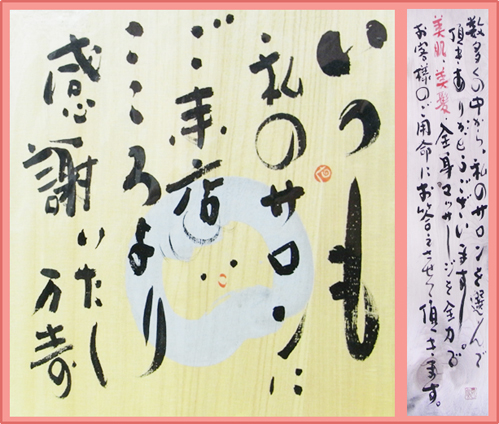 いつも
私のサロンに
ご来店
こころより
感謝いたし
万寿
数多くの中から、私のサロンを選んで
頂きありがとうございます。
美肌・美髪・全身マッサージを全力で
お客様のご用命にお答えさせて頂きます。